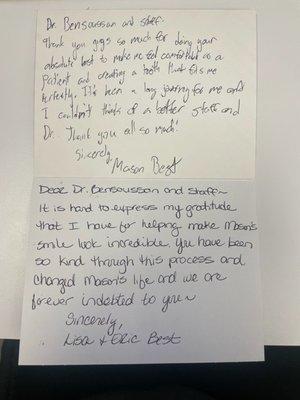 Dr. Bensoussan and staff,
Thank you guys so much for doing your
absolute best to make me feel comfortable as a
patient and creating a tooth that fits me
perfectly. It's been a long journey for me and
I couldn't think of a better staff and
Dr. Thank you all so much!
Sincerely
Mason Best
Dear Dr. Bensousson and Staff~
It is hard to express my gratitude
that I have for helping make Mason's
smile look incredible. You have been
so kind through this process and
changed Mason's life and we are
forever indebted to you~
Sincerely,
Lisa & Eric Best